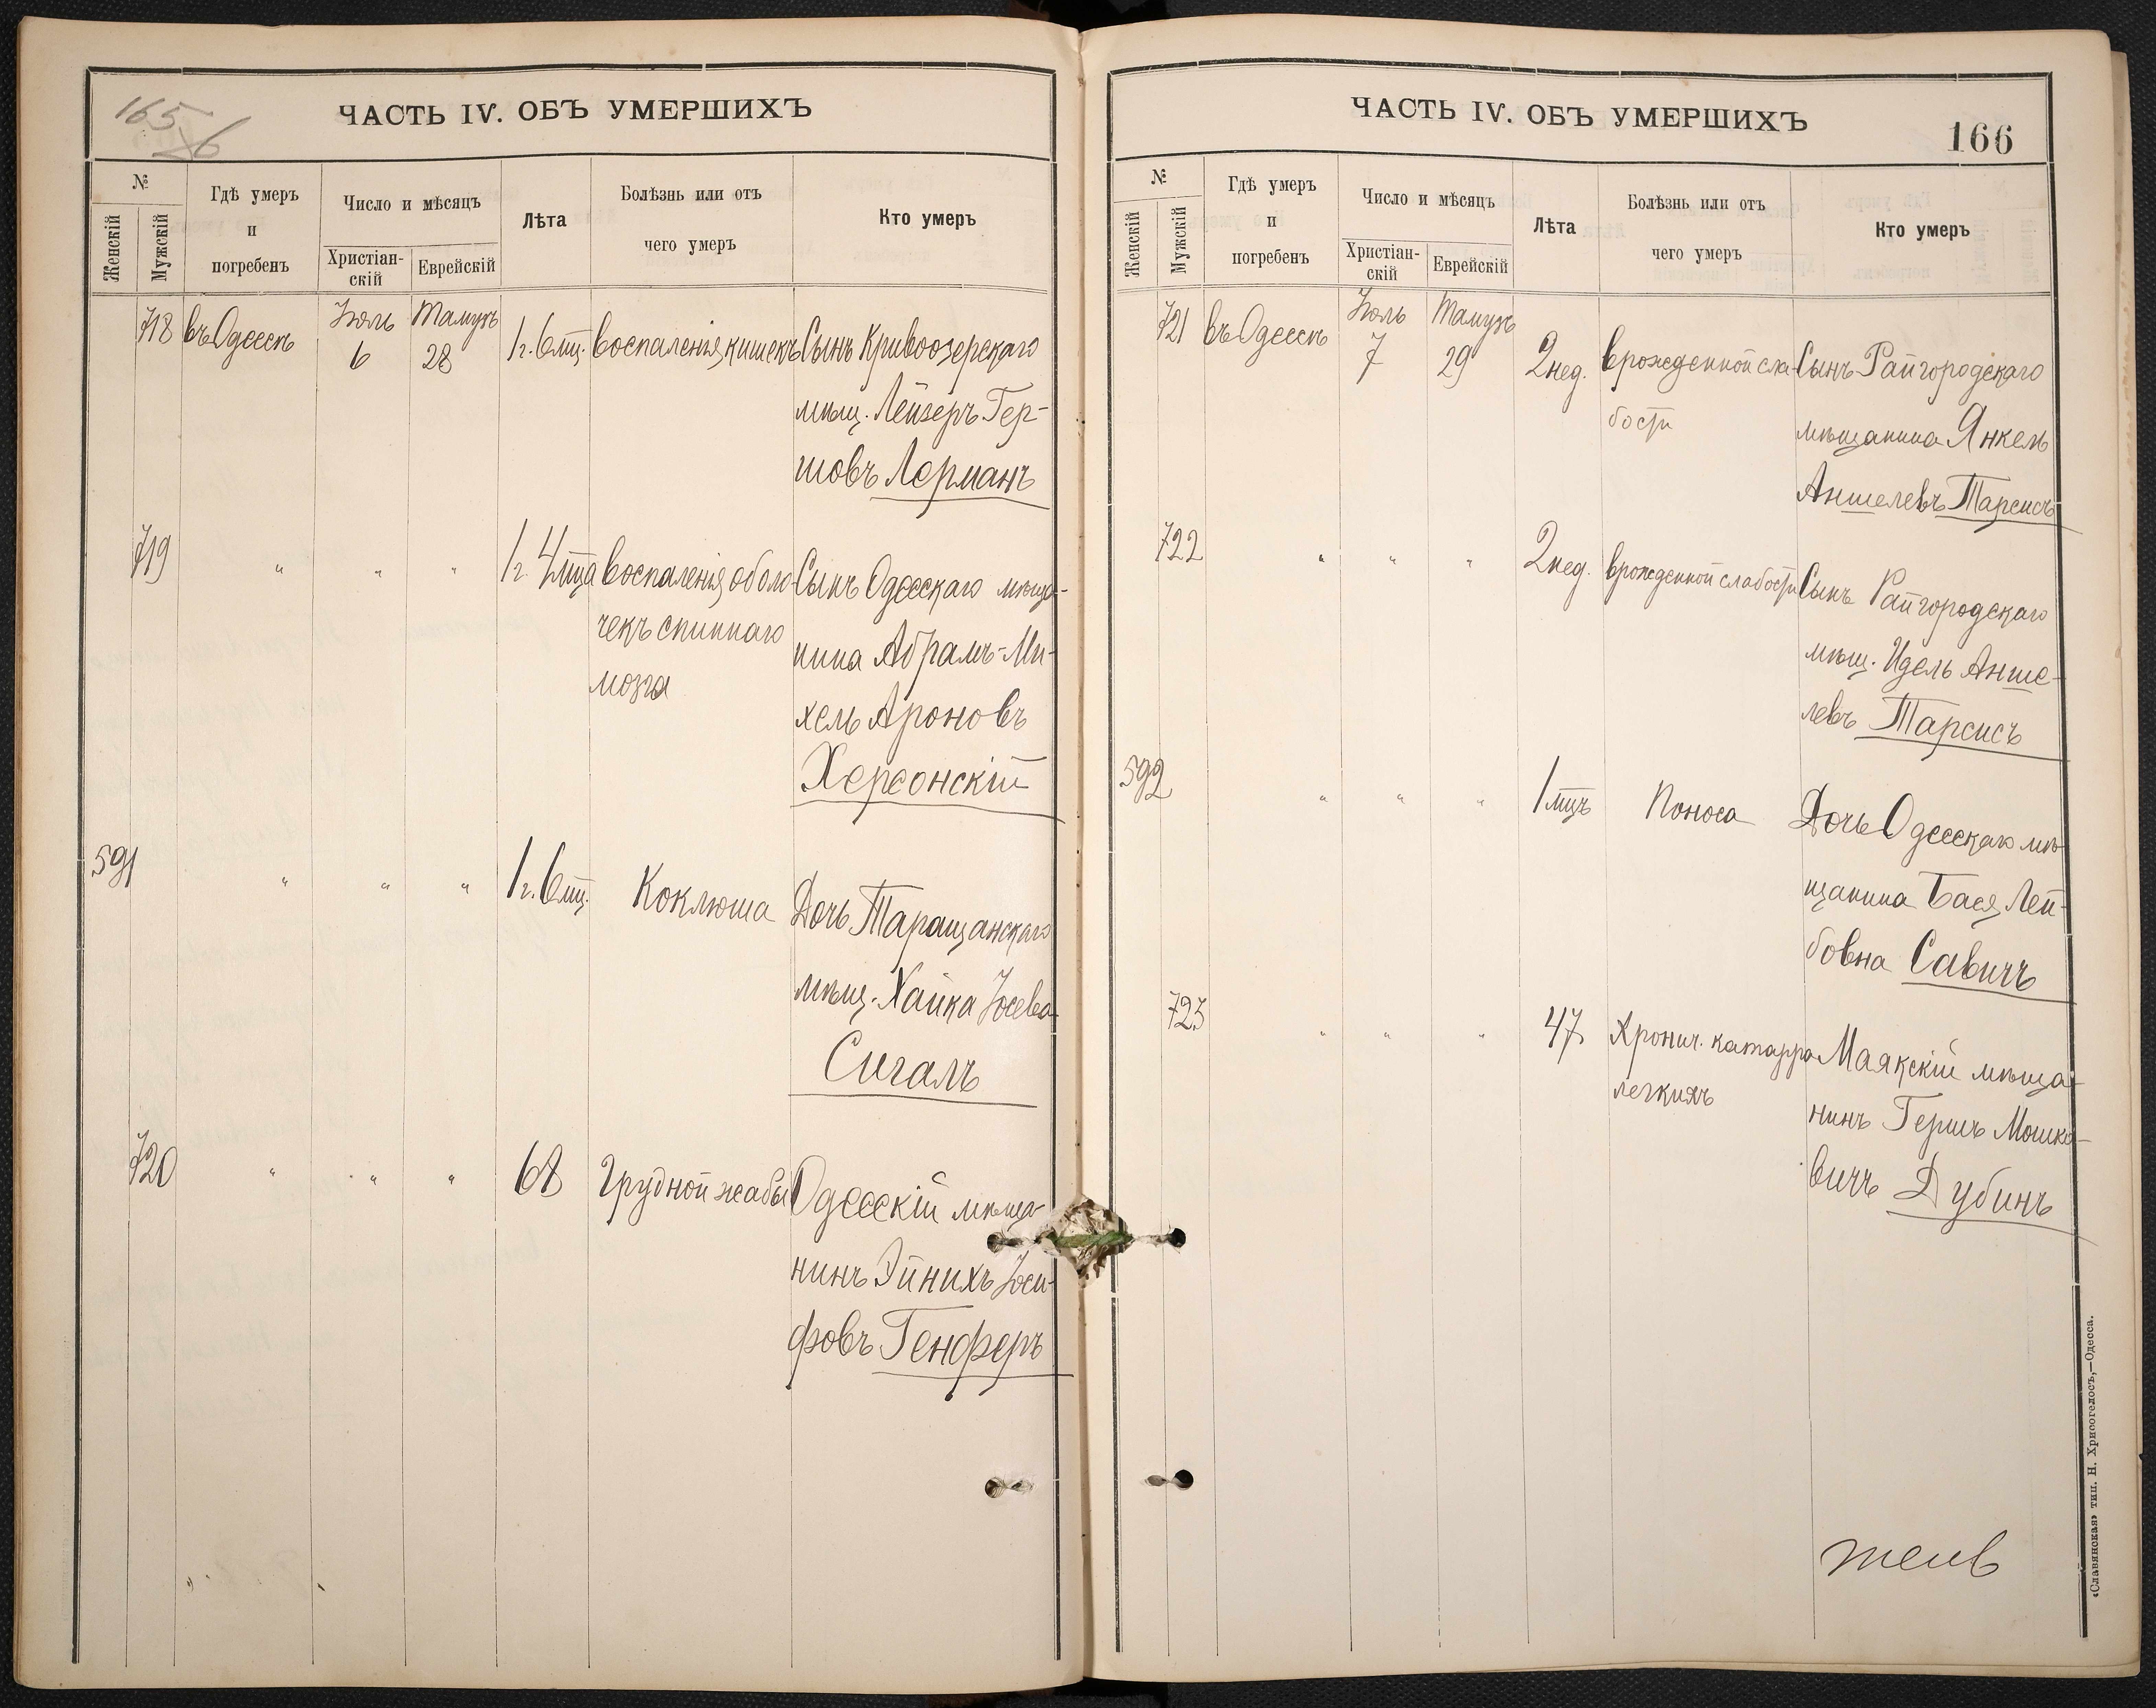 165
26
ЧАСТЬ IV. ОБЪ УМЕРШИХЪ
№
Женскій
Мужскій
Гдѣ умеръ
и
погребенъ
Число и мѣсяцъ
Христіан-
скій
Еврейскій
Лѣта
Болѣзнь или отъ
чего умеръ
Кто умеръ
718 въ Одессѣ Іюль 6 Тамузъ 28 1 г. 6 мц. Воспаленія кишекъ Сынъ Кривоозерскаго
мѣщ. Лейзеръ Гер-
шовъ Лерманъ
719 " " " 1 г. 4 мца Воспаленія оболо- Сынъ Одесскаго мѣща-
чекъ спиннаго нина Абрамъ-Ми-
мозга хель Ароновъ
Херсонскій
591 " " " 1 г. 6 мц. Коклюша Дочь Таращанскаго
мѣщ. Хайка Іосева
Сигалъ
720 " " " 68 Грудной жабы Одесскій мѣща-
нинъ Эйнихъ Іоси-
фовъ Генферъ
ЧАСТЬ IV. ОБЪ УМЕРШИХЪ
166
№
Женскій
Мужскій
Гдѣ умеръ
и
погребенъ
Число и мѣсяцъ
Христіан-
скій
Еврейскій
Лѣта
Болѣзнь или отъ
чего умеръ
Кто умеръ
721 въ Одессѣ Іюль 7 Тамузъ 29 2 нед. врожденной сла- Сынъ Райгородскаго
бости мѣщанина Янкель
Аншелевъ Тарсисъ
722 " " " 2 нед. врожденной слабости Сынъ Райгородскаго
мѣщ. Идель Анше-
левъ Тарсисъ
592 " " " 1 мцъ Поноса Дочь Одесскаго мѣ-
щанина Бася Лей-
бовна Савичъ
723 " " " 47 Хронич. катарра Маякскій мѣща-
легкихъ нинъ Гершъ Мошко-
вичъ Дубинъ
«Славянская» тип. Н. Хрисогелосъ,—Одесса.